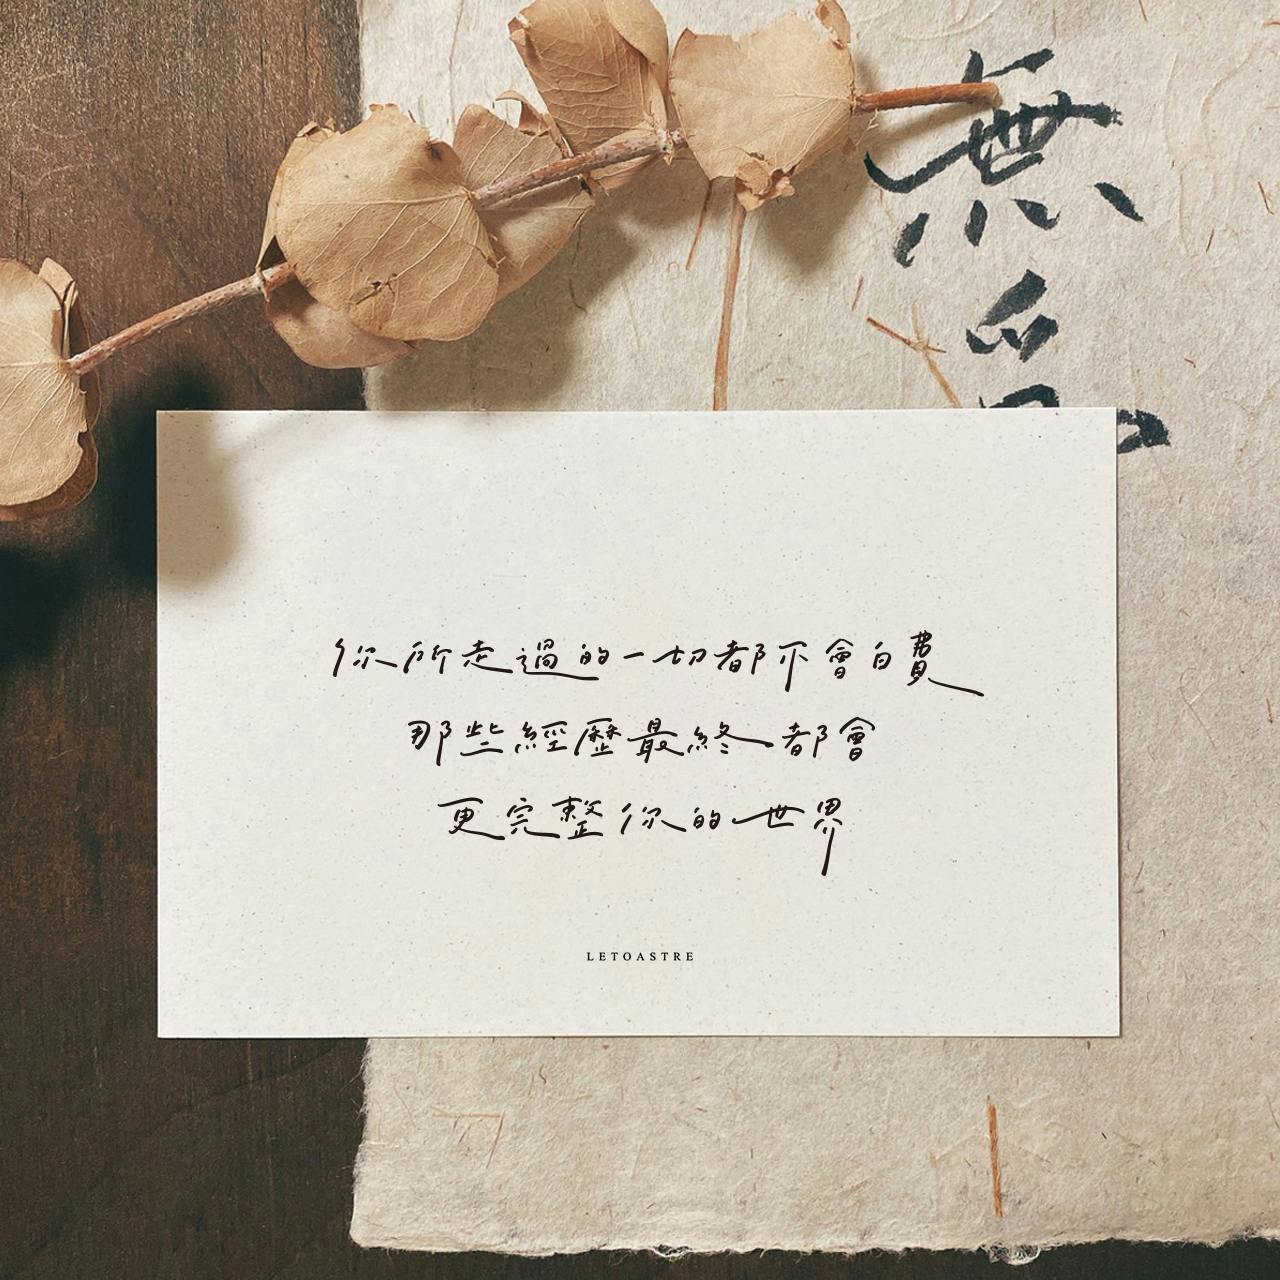 無
你所走過的一切都不會白費
那些經歷最終都會
更完整你的世界
LETOASTRE